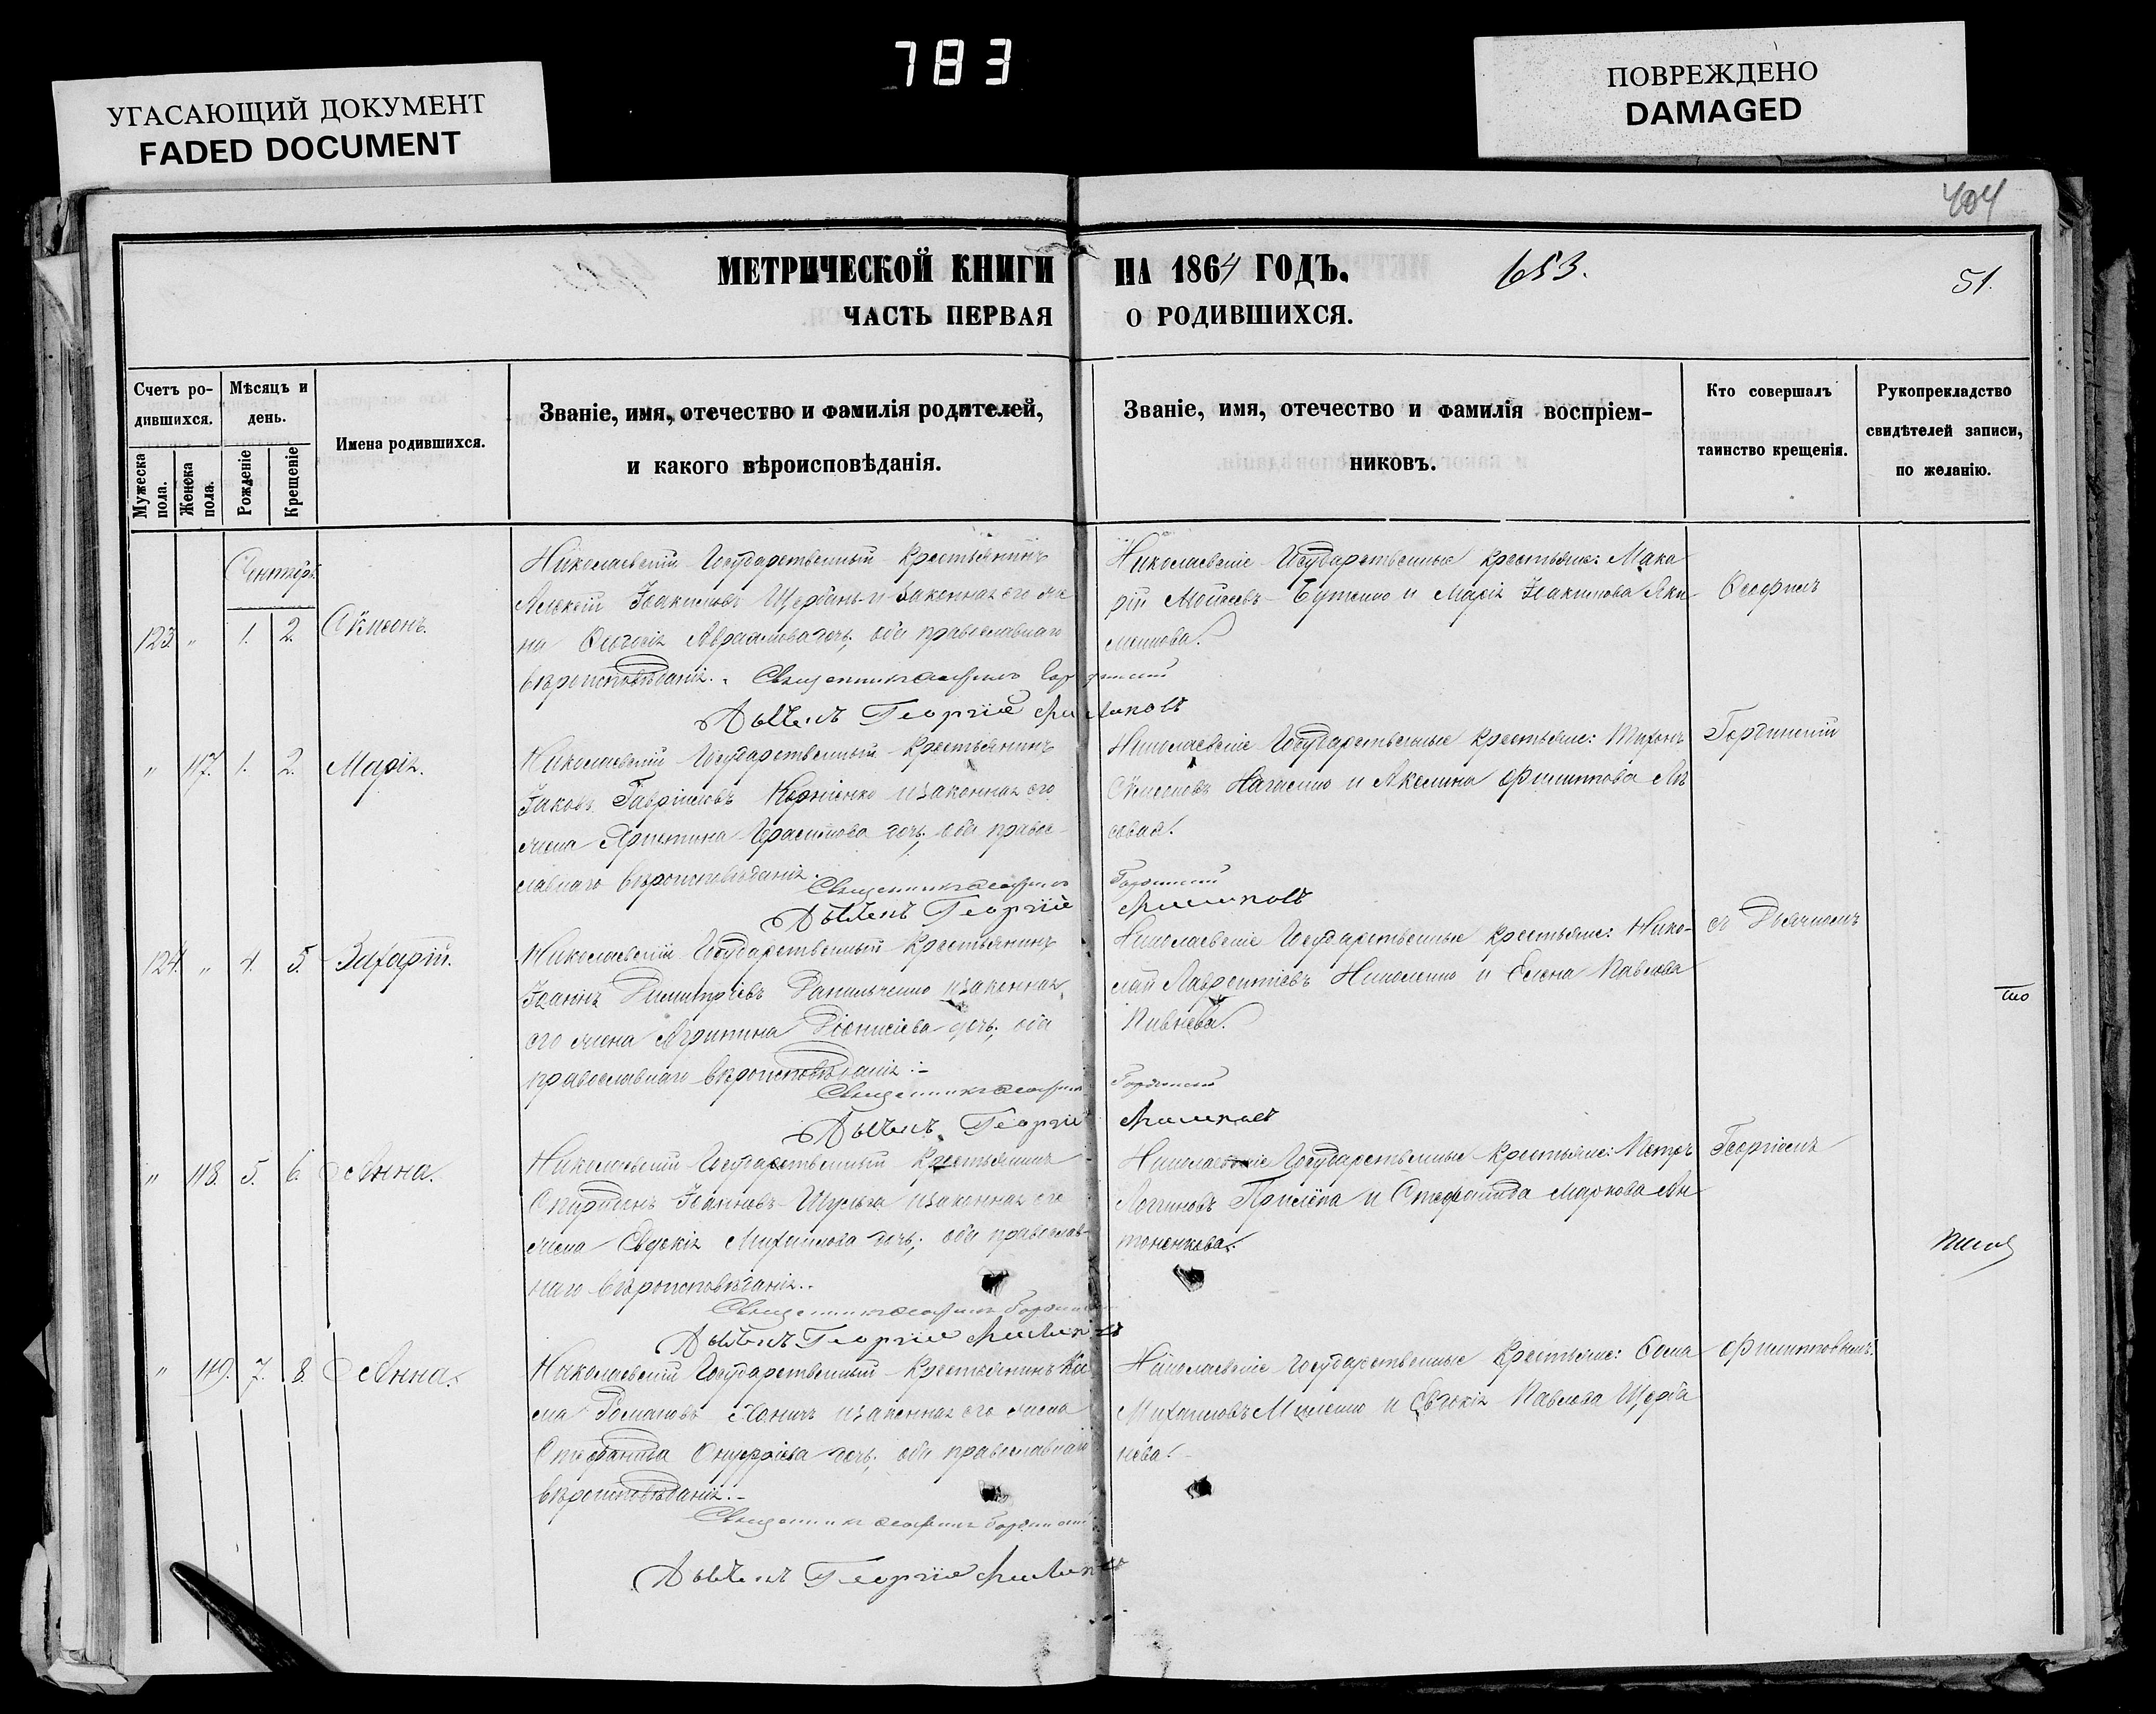 783
УГАСАЮЩИЙ ДОКУМЕНТ
FADED DOCUMENT
ПОВРЕЖДЕНО
DAMAGED
404
МЕТРИЧЕСКОЙ КНИГИ НА 1864 ГОДЪ.
653.
51.
ЧАСТЬ ПЕРВАЯ О РОДИВШИХСЯ.
Счетъ родившихся.
Мужеска пола.
Женска пола.
Мѣсяцъ и день.
Рожденіе
Крещеніе
Имена родившихся.
Званіе, имя, отечество и фамилія родителей,
и какого вѣроисповѣданія.
Званіе, имя, отечество и фамилія воспріем-
никовъ.
Кто совершалъ
таинство крещенія.
Рукопрекладство
свидѣтелей записи,
по желанію.
Сентябрь
123. " 1. 2. Симеонъ.
Николаевскій Государственный Крестьянинъ
Алексій Іоакимовъ Щербань и законная его же
на Ѳеодосія Авраамова дочь, оба православнаго
вѣроисповѣданія.
Священникъ Ѳеофилъ
Дьячекъ Георгій
Николаевскіе Государственные крестьяне: Мака
рій Моисеевъ Бутенко и Марія Іоакимова Яки
менкова.
Ѳеофилъ
" 117. 1. 2. Марія.
Николаевскій Государственный Крестьянинъ
Іаковъ Гавріиловъ Корніенко и законная его
жена Христина Герасимова дочь, оба право
славнаго вѣроисповѣданія.
Священникъ Ѳеофилъ
Дьячекъ Георгій
Николаевскіе Государственные крестьяне: Тихонъ
Симеоновъ и Акилина Филиппова Лѣ
совая.
124. " 4. 5. Захарій.
Николаевскій Государственный Крестьянинъ
Іоаннъ Димитріевъ Данильченко и законная
его жена Агрипина Діонисіева дочь, оба
православнаго вѣроисповѣданія.
Священникъ Ѳеофилъ
Дьячекъ Георгій
Николаевскіе Государственные крестьяне: Нико-
лай Лаврентіевъ Николенко и Елена Павлова
Пивнева.
съ Дьячкомъ
" 118. 5. 6. Анна.
Николаевскій Государственный Крестьянинъ
Спиридонъ Іоанновъ Шульга и законная его
жена Евдокія Михайлова дочь, оба православ-
наго вѣроисповѣданія.
Священникъ Ѳеофилъ
Дьячекъ Георгій
Николаевскіе Государственные Крестьяне: Петръ
Логгиновъ и Стефанида Маркова Ан
тоненкова.
Георгіемъ
" 119. 7. 8. Анна.
Николаевскій Государственный Крестьянинъ
Романовъ и законная его жена
Стефанида Онуфріева дочь, оба православнаго
вѣроисповѣданія.
Священникъ Ѳеофилъ
Дьячекъ Георгій
Николаевскіе Государственные Крестьяне: Ѳома
Михаиловъ и Евдокія Павлова Щерба
нева.